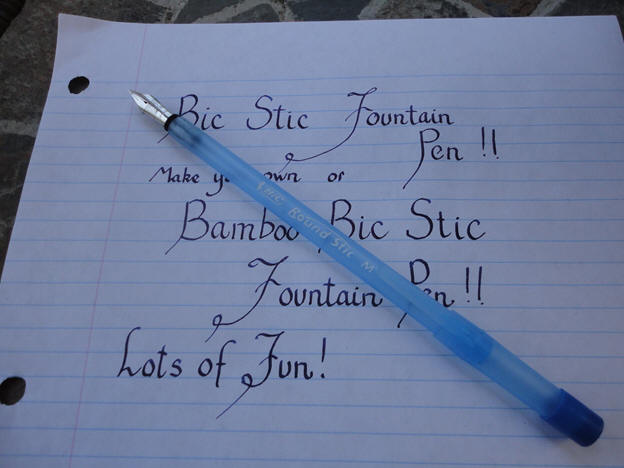 Bic Stic Fountain
Pen !!
Make your own or
Bamboo Bic Stic
Fountain Pen!!
Lots of Fun!
BIC Round Stic M